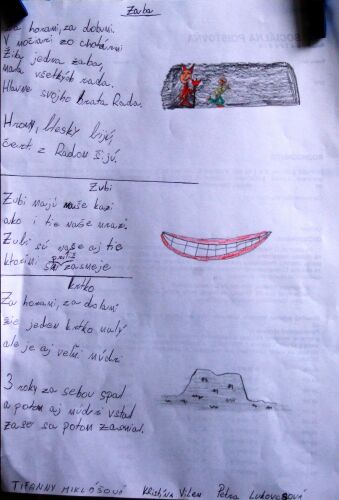 Žaba
Za horami, za dolami.
V močiari zo chotármi
Žila jedna žaba,
mala všetkých rada.
Hlavne svojho brata Rada.
Hromy, blesky bijú,
čert z Radom žijú.
Zubi
Zubi majú naše kazi
ako i tie vaše mrazi.
Zubi sú vaše aj tie
ktorími sa zasmeje
krtko
Za horami, za dolami
žie jeden krtko malý
ale je aj veľmi múdri
3 roky za sebou spal
a potom aj múdri vstal
zaso sa potom zasmial.
TIFANNY MIKLÓŠOVÁ Kristína Petra